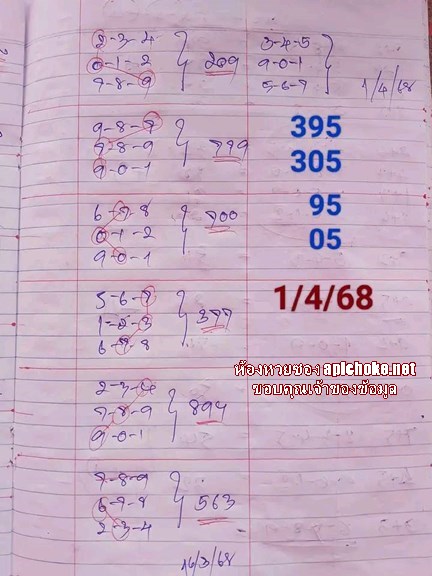 2-3-4
0-1-2
7-8-9
209
3-4-5
9-0-1
5-6-7
1/4/68
9-8-7
7-8-9
9-0-1
779
395
305
6-7-8
0-1-2
9-0-1
700
95
05
5-6-7
1-2-3
6-7-8
377
1/4/68
ห้องหวยซอง aplchoke.net
ขอบคุณเจ้าของข้อมูล
2-3-4
7-8-9
9-0-1
894
7-8-9
6-7-8
2-3-4
563
16/3/68